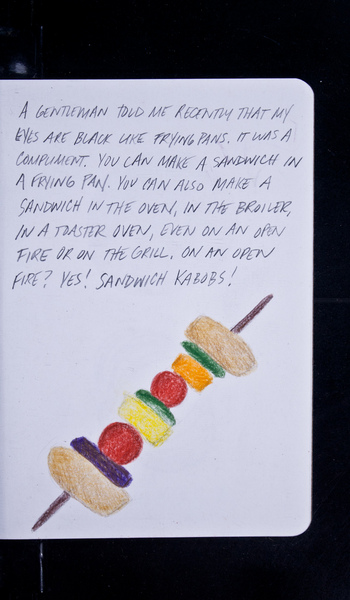 A GENTLEMAN TOLD ME RECENTLY THAT MY
EYES ARE BLACK LIKE FRYING PANS. IT WAS A
COMPLIMENT. YOU CAN MAKE A SANDWICH IN
A FRYING PAN. YOU CAN ALSO MAKE A
SANDWICH IN THE OVEN, IN THE BROILER,
IN A TOASTER OVEN, EVEN ON AN OPEN
FIRE OR ON THE GRILL. ON AN OPEN
FIRE? YES! SANDWICH KABOBS!